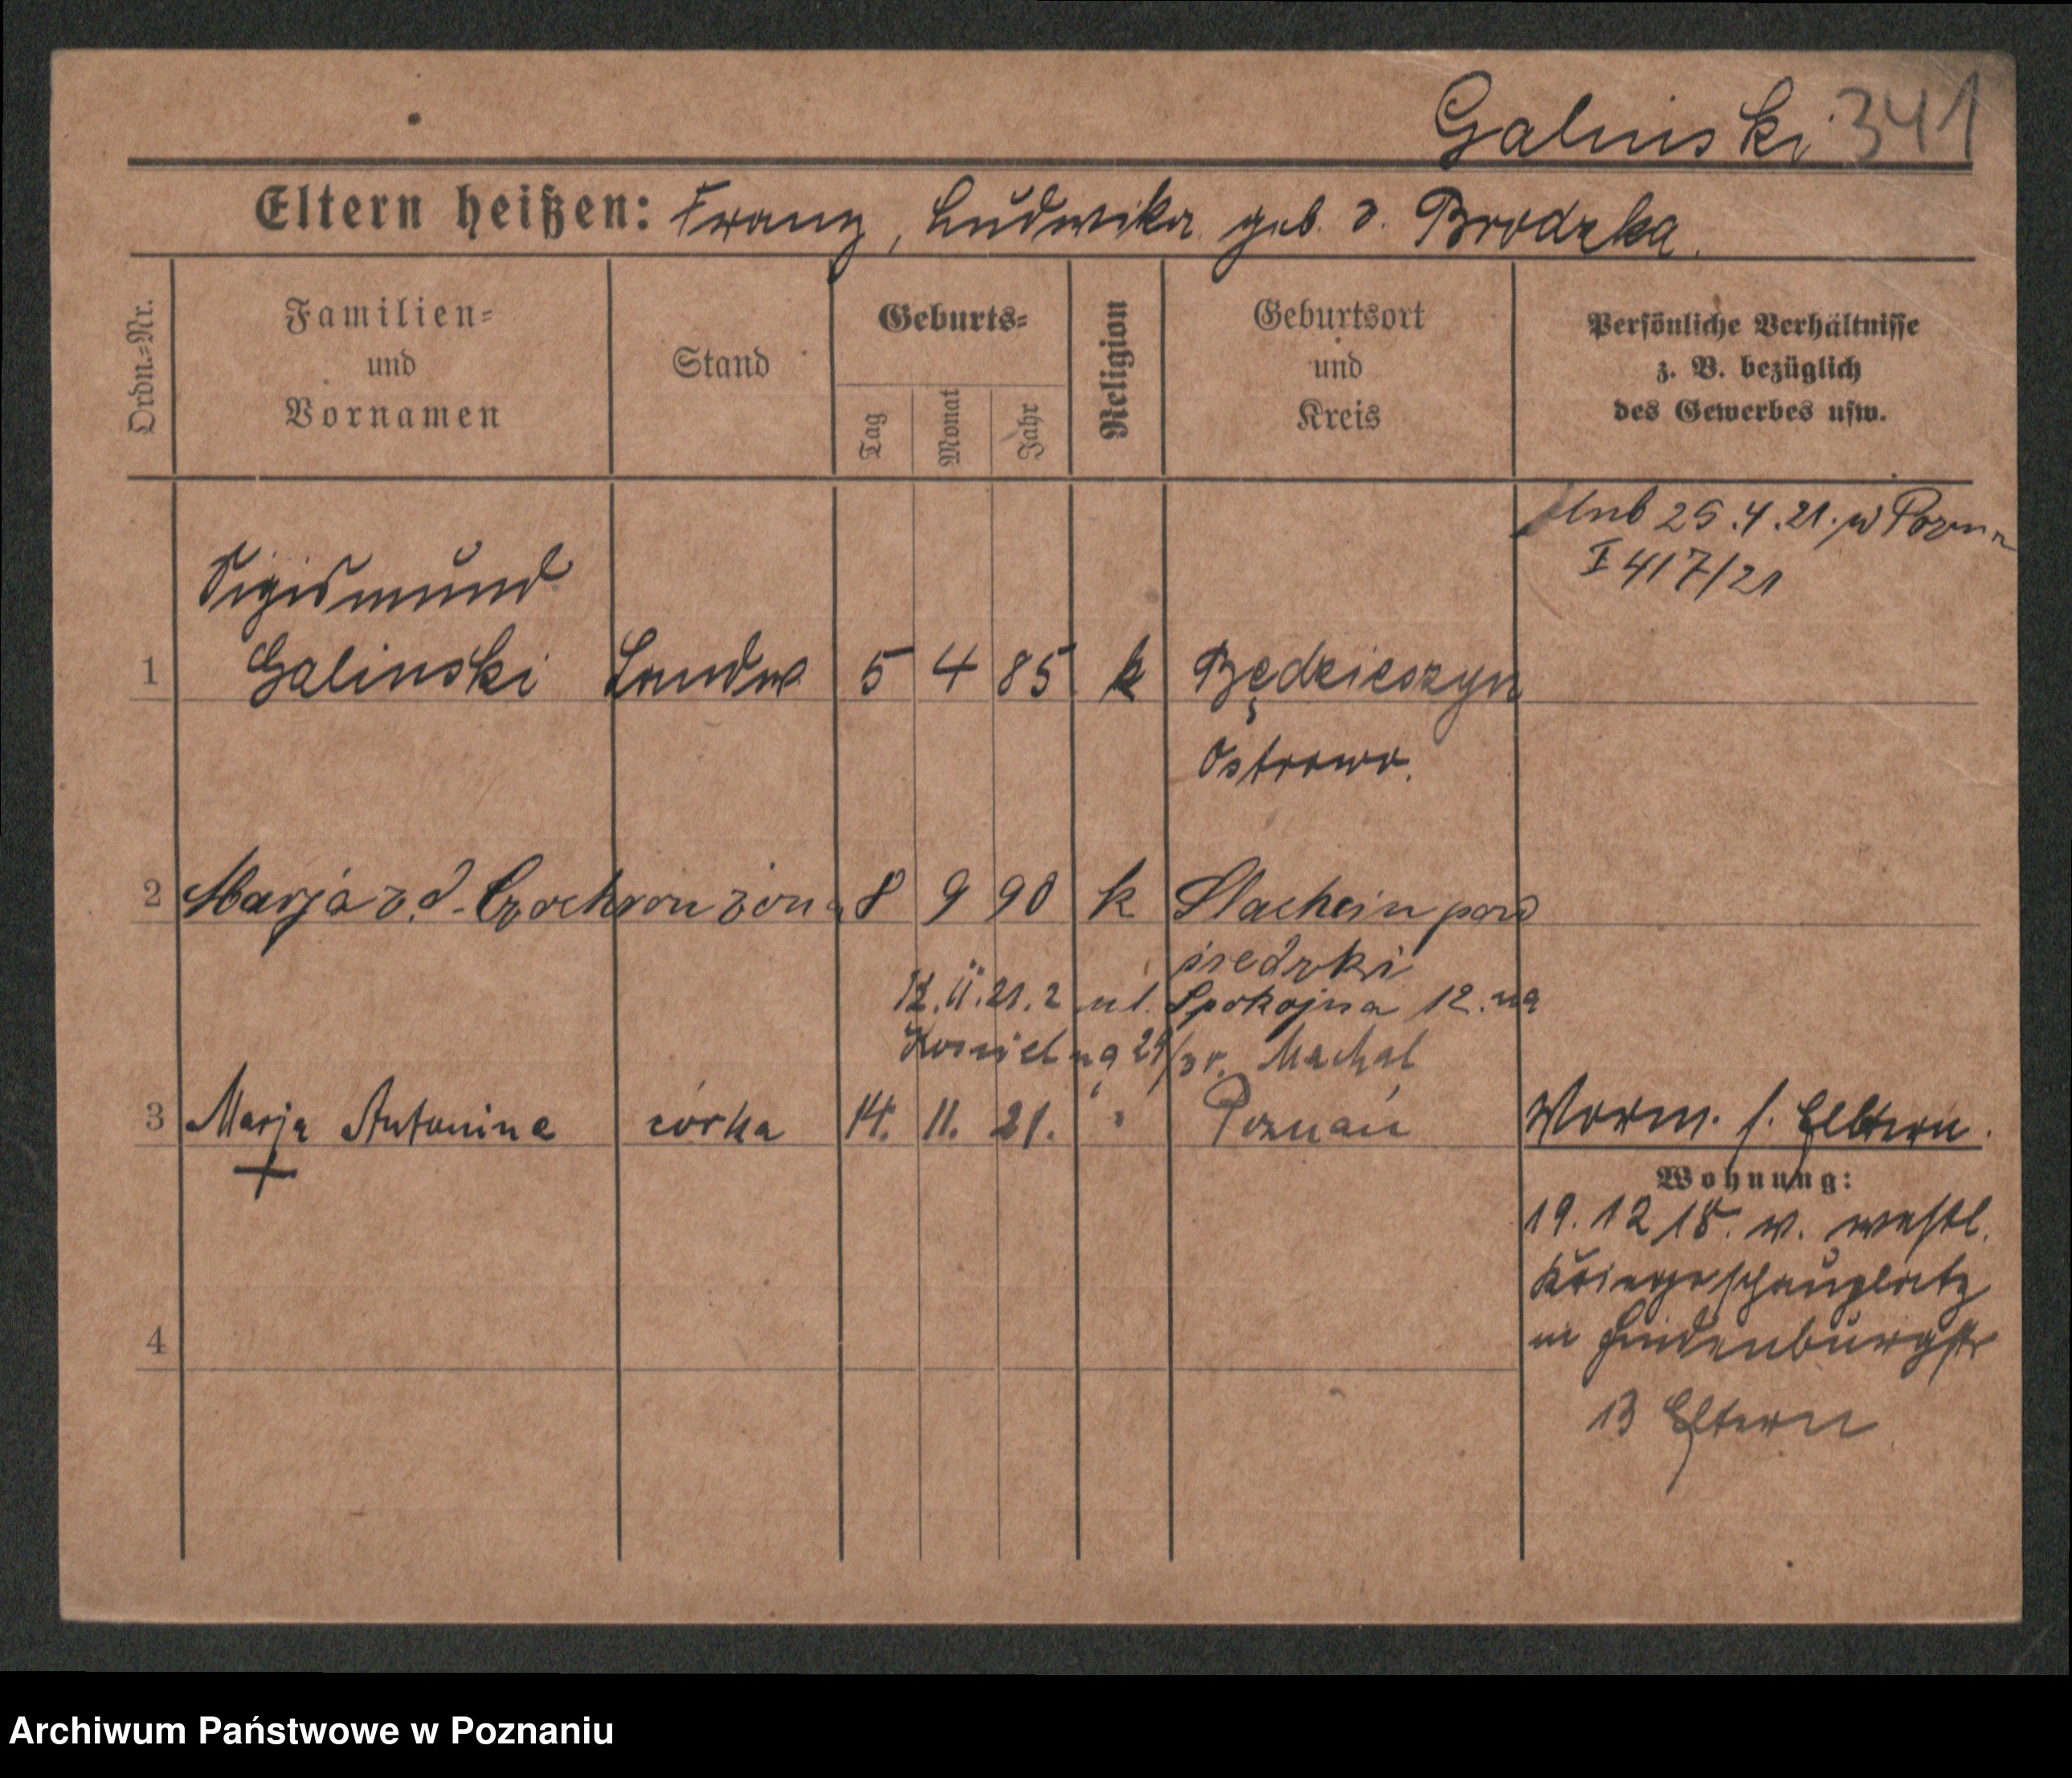 Galinski 341
Eltern heißen: Franz, Ludwika geb. v. Brodzka.
Ordn.=Nr.
Familien=
und
Vornamen
Stand
Geburts=
Tag
Monat
Jahr
Religion
Geburtsort
und
Kreis
Persönliche Verhältnisse
z. B. bezüglich
des Gewerbes usw.
ślub 25.4.21. w Pozn
I 417/21
Sigismund
1 Galinski Landw 5 4 85 k Będzieszyn
Ostrowo.
2 Marja z d. żona 8 9 90 k pow
średzki
12.11.21. z ul. Spokojna 12. na
29/30. Machal
3 Marja Antonina córka 14. 11. 21. " Poznań
+
Worm. s. Eltern.
Wohnung:
19.12 18. v. westl.
Kriegsschauplatz
n Hindenburgstr
13 Eltern
4
Archiwum Państwowe w Poznaniu